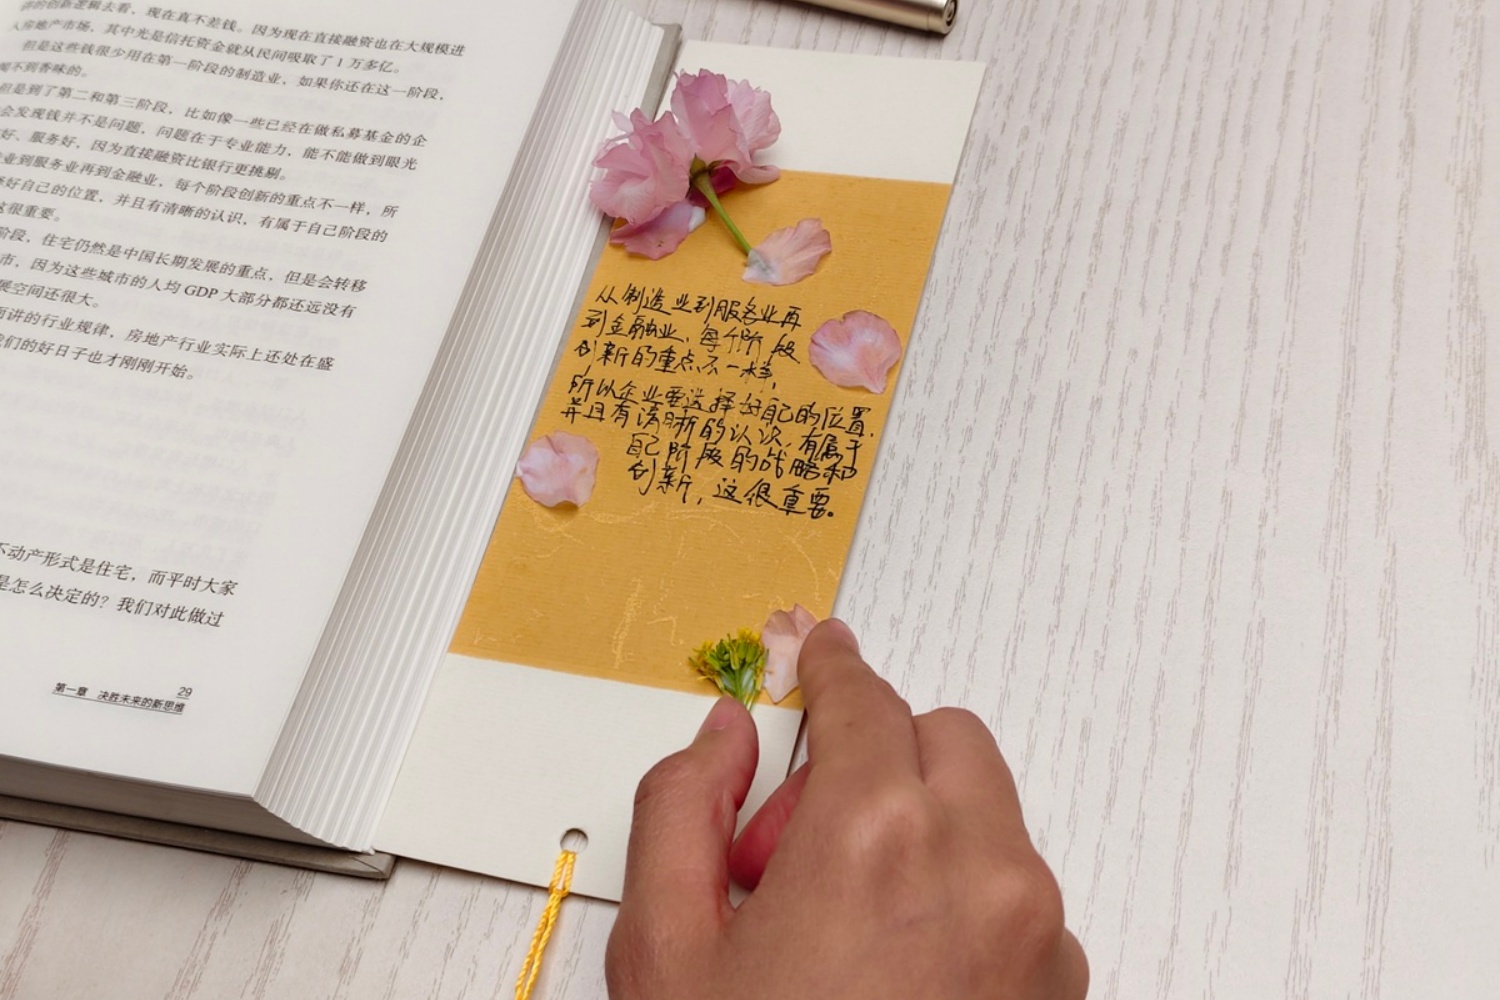 讲的创新逻辑去看，现在真不差钱。因为现在直接融资也在大规模进
入房地产市场，其中光是信托资金就从民间吸取了1万多亿。
但是这些钱很少用在第一阶段的制造业，如果你还在这一阶段，
闻不到香味的。
但是到了第二和第三阶段，比如像一些已经在做私募基金的企
会发现钱并不是问题，问题在于专业能力，能不能做到眼光
好、服务好，因为直接融资比银行更挑剔。
业到服务业再到金融业，每个阶段创新的重点不一样，所
择好自己的位置，并且有清晰的认识，有属于自己阶段的
这很重要。
阶段，住宅仍然是中国长期发展的重点，但是会转移
市，因为这些城市的人均GDP大部分都还远没有
展空间还很大。
面讲的行业规律，房地产行业实际上还处在盛
我们的好日子也才刚刚开始。
不动产形式是住宅，而平时大家
是怎么决定的？我们对此做过
29
第一章 决胜未来的新思维
从制造业到服务业再
到金融业，每个阶段
创新的重点不一样，
所以企业要选择好自己的位置，
并且有清晰的认识，有属于
自己阶段的战略和
创新，这很重要。